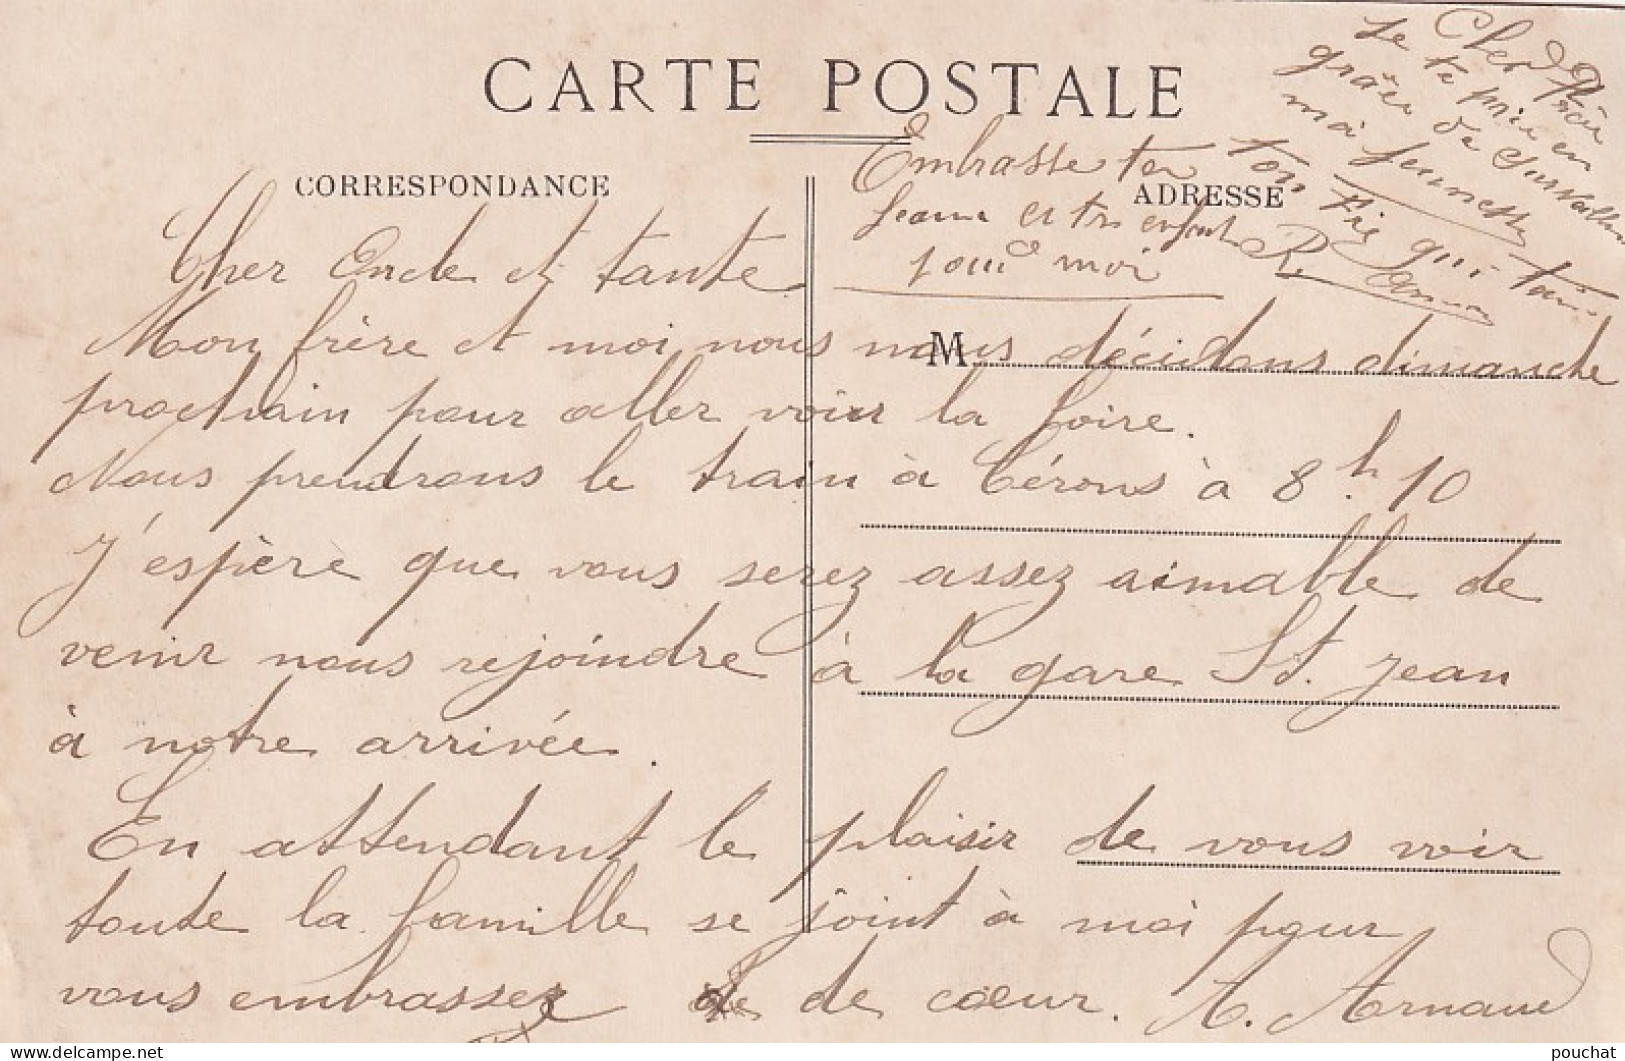 CARTE POSTALE
CORRESPONDANCE
ADRESSE
M
Cher
je te prie en
grâce de surveiller
ma jeunesse
ton
qui
Embrasse
Jeanne et tes enfants
pour moi
Cher Oncle et tante
Mon frère et moi nous nous décidons dimanche
prochain pour aller voir la foire.
Nous prendrons le train à Cérons à 8 h. 10
J'espère que vous serez assez aimable de
venir nous rejoindre à la gare St. Jean
à notre arrivée.
En attendant le plaisir de vous voir
toute la famille se joint à moi pour
vous embrassez de de cœur. A. Arnaud
pouchat